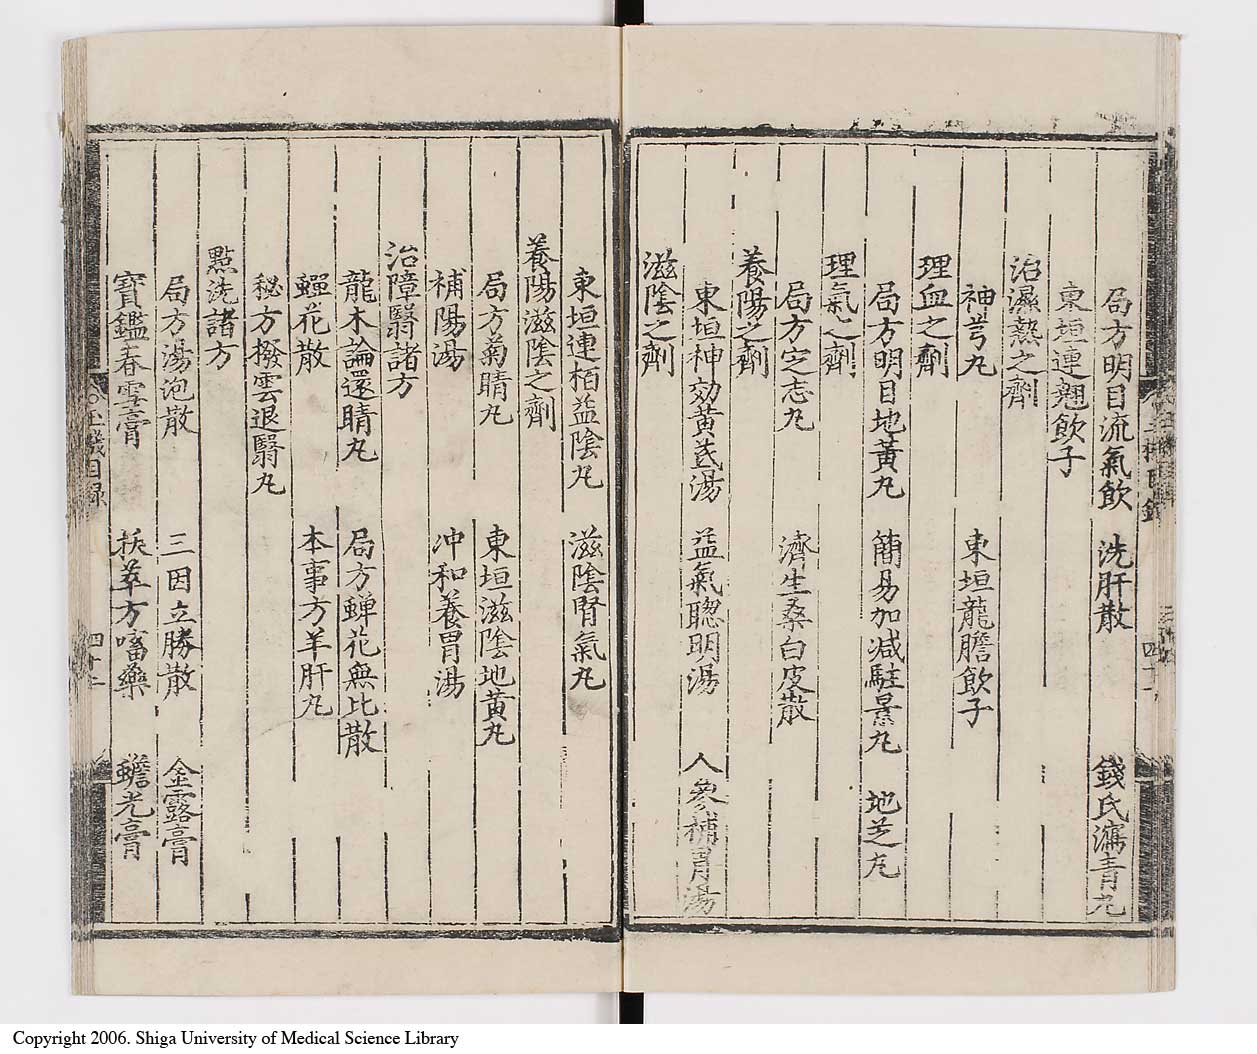 局方明目流氣飲 洗肝散 錢氏瀉青丸
東垣連翹飲子
治濕熱之劑
袖芎丸 東垣龍膽飲子
理血之劑
局方明目地黃丸 簡易加减駐景丸 地芝丸
理氣之劑
局方定志丸 濟生桑白皮散
養陽之劑
東垣神効黄芪湯 益氣聰明湯 人參補胃湯
滋陰之劑
東垣連栢益陰丸 滋陰腎氣丸
養陽滋陰之劑
局方菊睛丸 東垣滋陰地黄丸
補陽湯 冲和養胃湯
治障翳諸方
龍木論還睛丸 局方蟬花無比散
蟬花散 本事方羊肝丸
秘方撥雲退翳丸
點洗諸方
局方湯泡散 三因立勝散 金露膏
寳鑑春雪膏 捄萃方㗜藥 蟾光膏
玉機目録
四十二
Copyright 2006. Shiga University of Medical Science Library